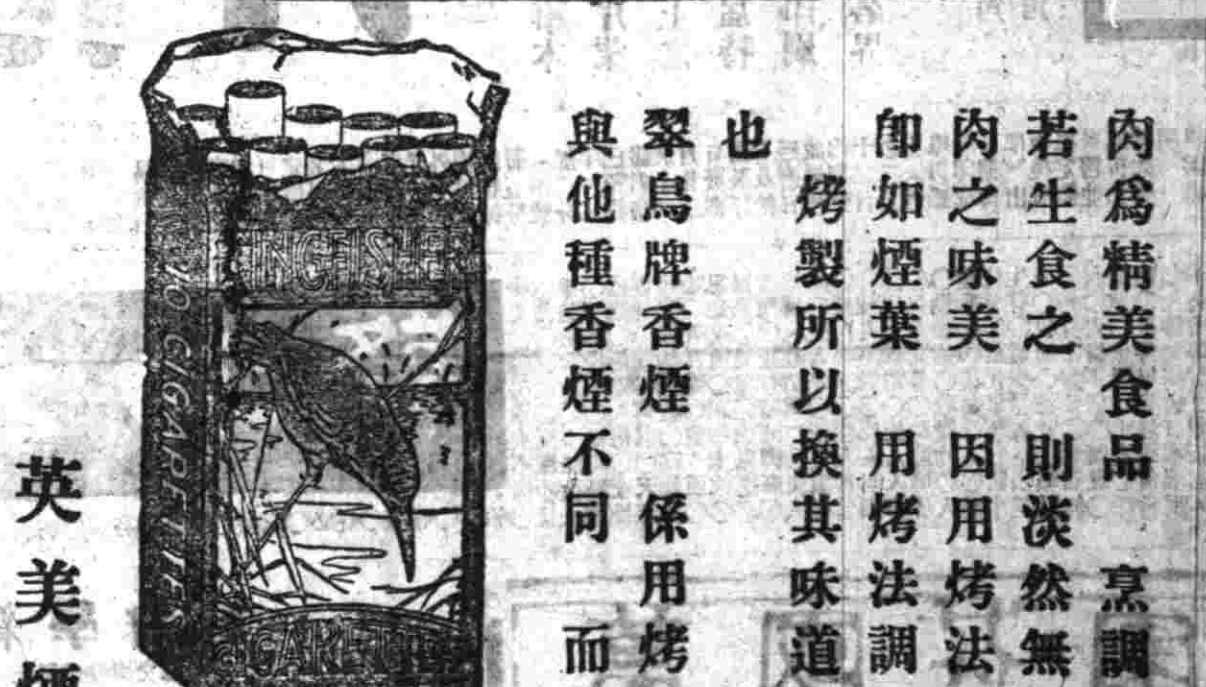 肉爲精美食品　烹調
若生食之　則淡然無
肉之味美　因用烤法
卽如煙葉　用烤法調
烤製所以換其味道
也
翠鳥牌香煙　係用烤
與他種香煙不同　而
KINGFISHER
10 CIGARETTES
CIGARETTES
英美煙